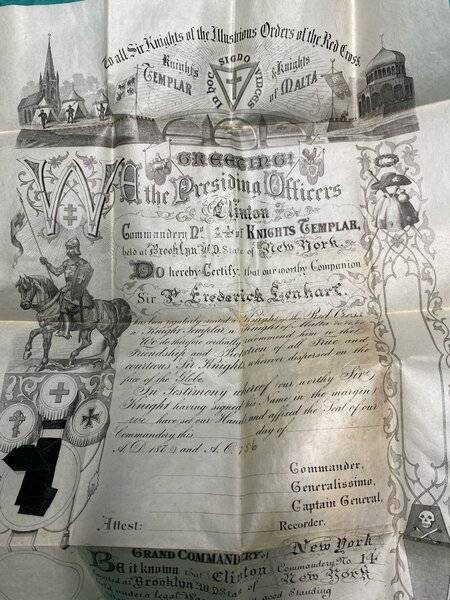 To all Sir Knights of the Illustrious Orders of the Red Cross
Knights TEMPLAR & Knights of MALTA
SIGDO
GREETING!
We the Presiding Officers
Clinton
Commandery No. 14 of KNIGHTS TEMPLAR,
held at Brooklyn W.D. State of New York.
Do hereby Certify, that our worthy Companion
Sir P. Frederick Lenhart.
has been regularly created a Knight of the Red Cross
a Knight Templar & Knight of Malta
We do therefore cordially recommend him to the
Friendship and Protection of all True and
courteous Sir Knights wherever dispersed on the
face of the Globe.
In Testimony whereof (our worthy Sir
Knight having signed his Name in the margin)
we have set our Hands and affixed the Seal of our
Commandery this day of
A.D. 18 and A.O. 75
Commander,
Generalissimo,
Captain General,
Attest: Recorder.
GRAND COMMANDERY of New York
Be it known that Clinton Commandery No. 14
located at Brooklyn W.D. State of New York
under a legal good Standing